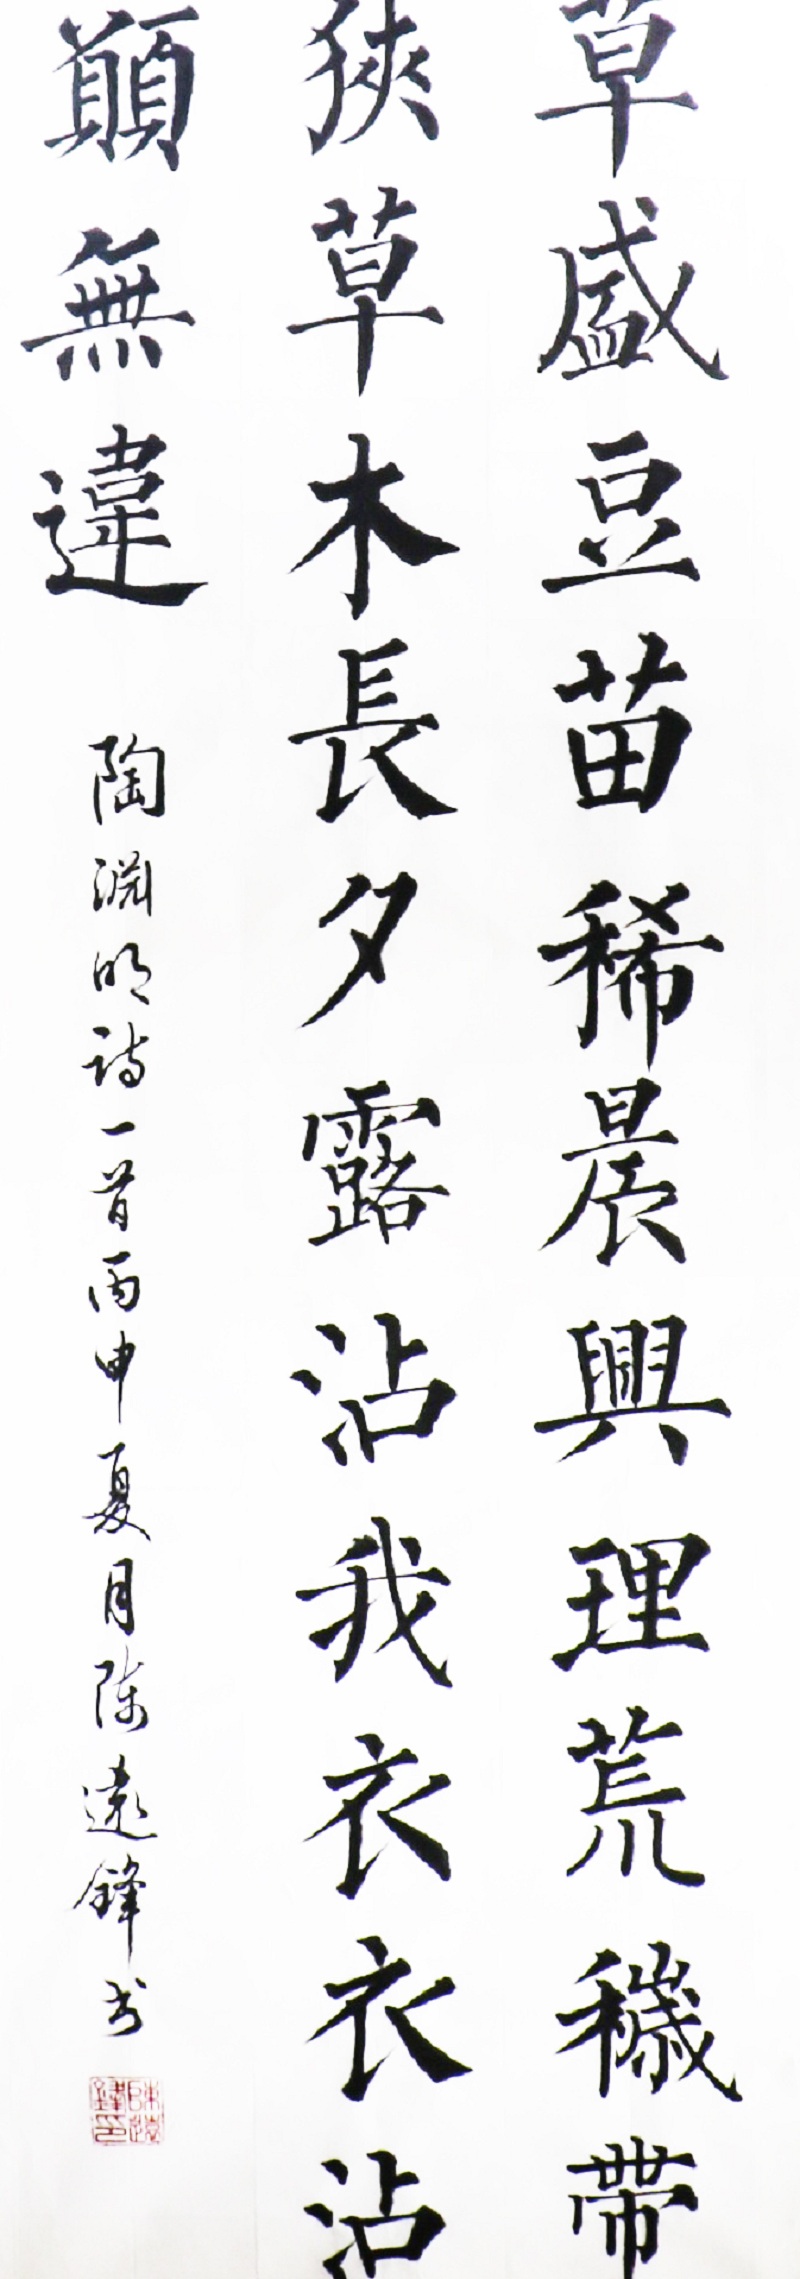 草盛豆苗稀晨興理荒穢帶
狹草木長夕露沾我衣衣沾
願無違
陶淵明詩一首丙申夏月陳遠鋒书
陳遠鋒印